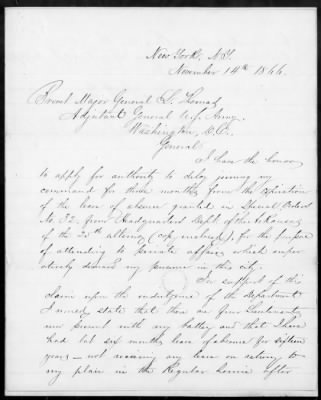 New York, N.Y.
November 14th 1866.
Brevet Major General L. Thomas,
Adjutant General U.S. Army,
Washington, D.C.
General:
I have the honor
to apply for authority to delay joining my
command for three months from the expiration
of the leave of absence granted in Special Orders
No. 32, from Headquarters Dept. of the Arkansas
of the 25th (copy enclosed), for the purpose
of attending to private affairs which imper-
atively demand my presence in this city.
In support of this
claim upon the indulgence of the Department
I would state that there are four Lieutenants
now present with my battery and that I have
had but six months leave of absence for sixteen
years — not receiving any leave on returning to
my place in the Regular Service after